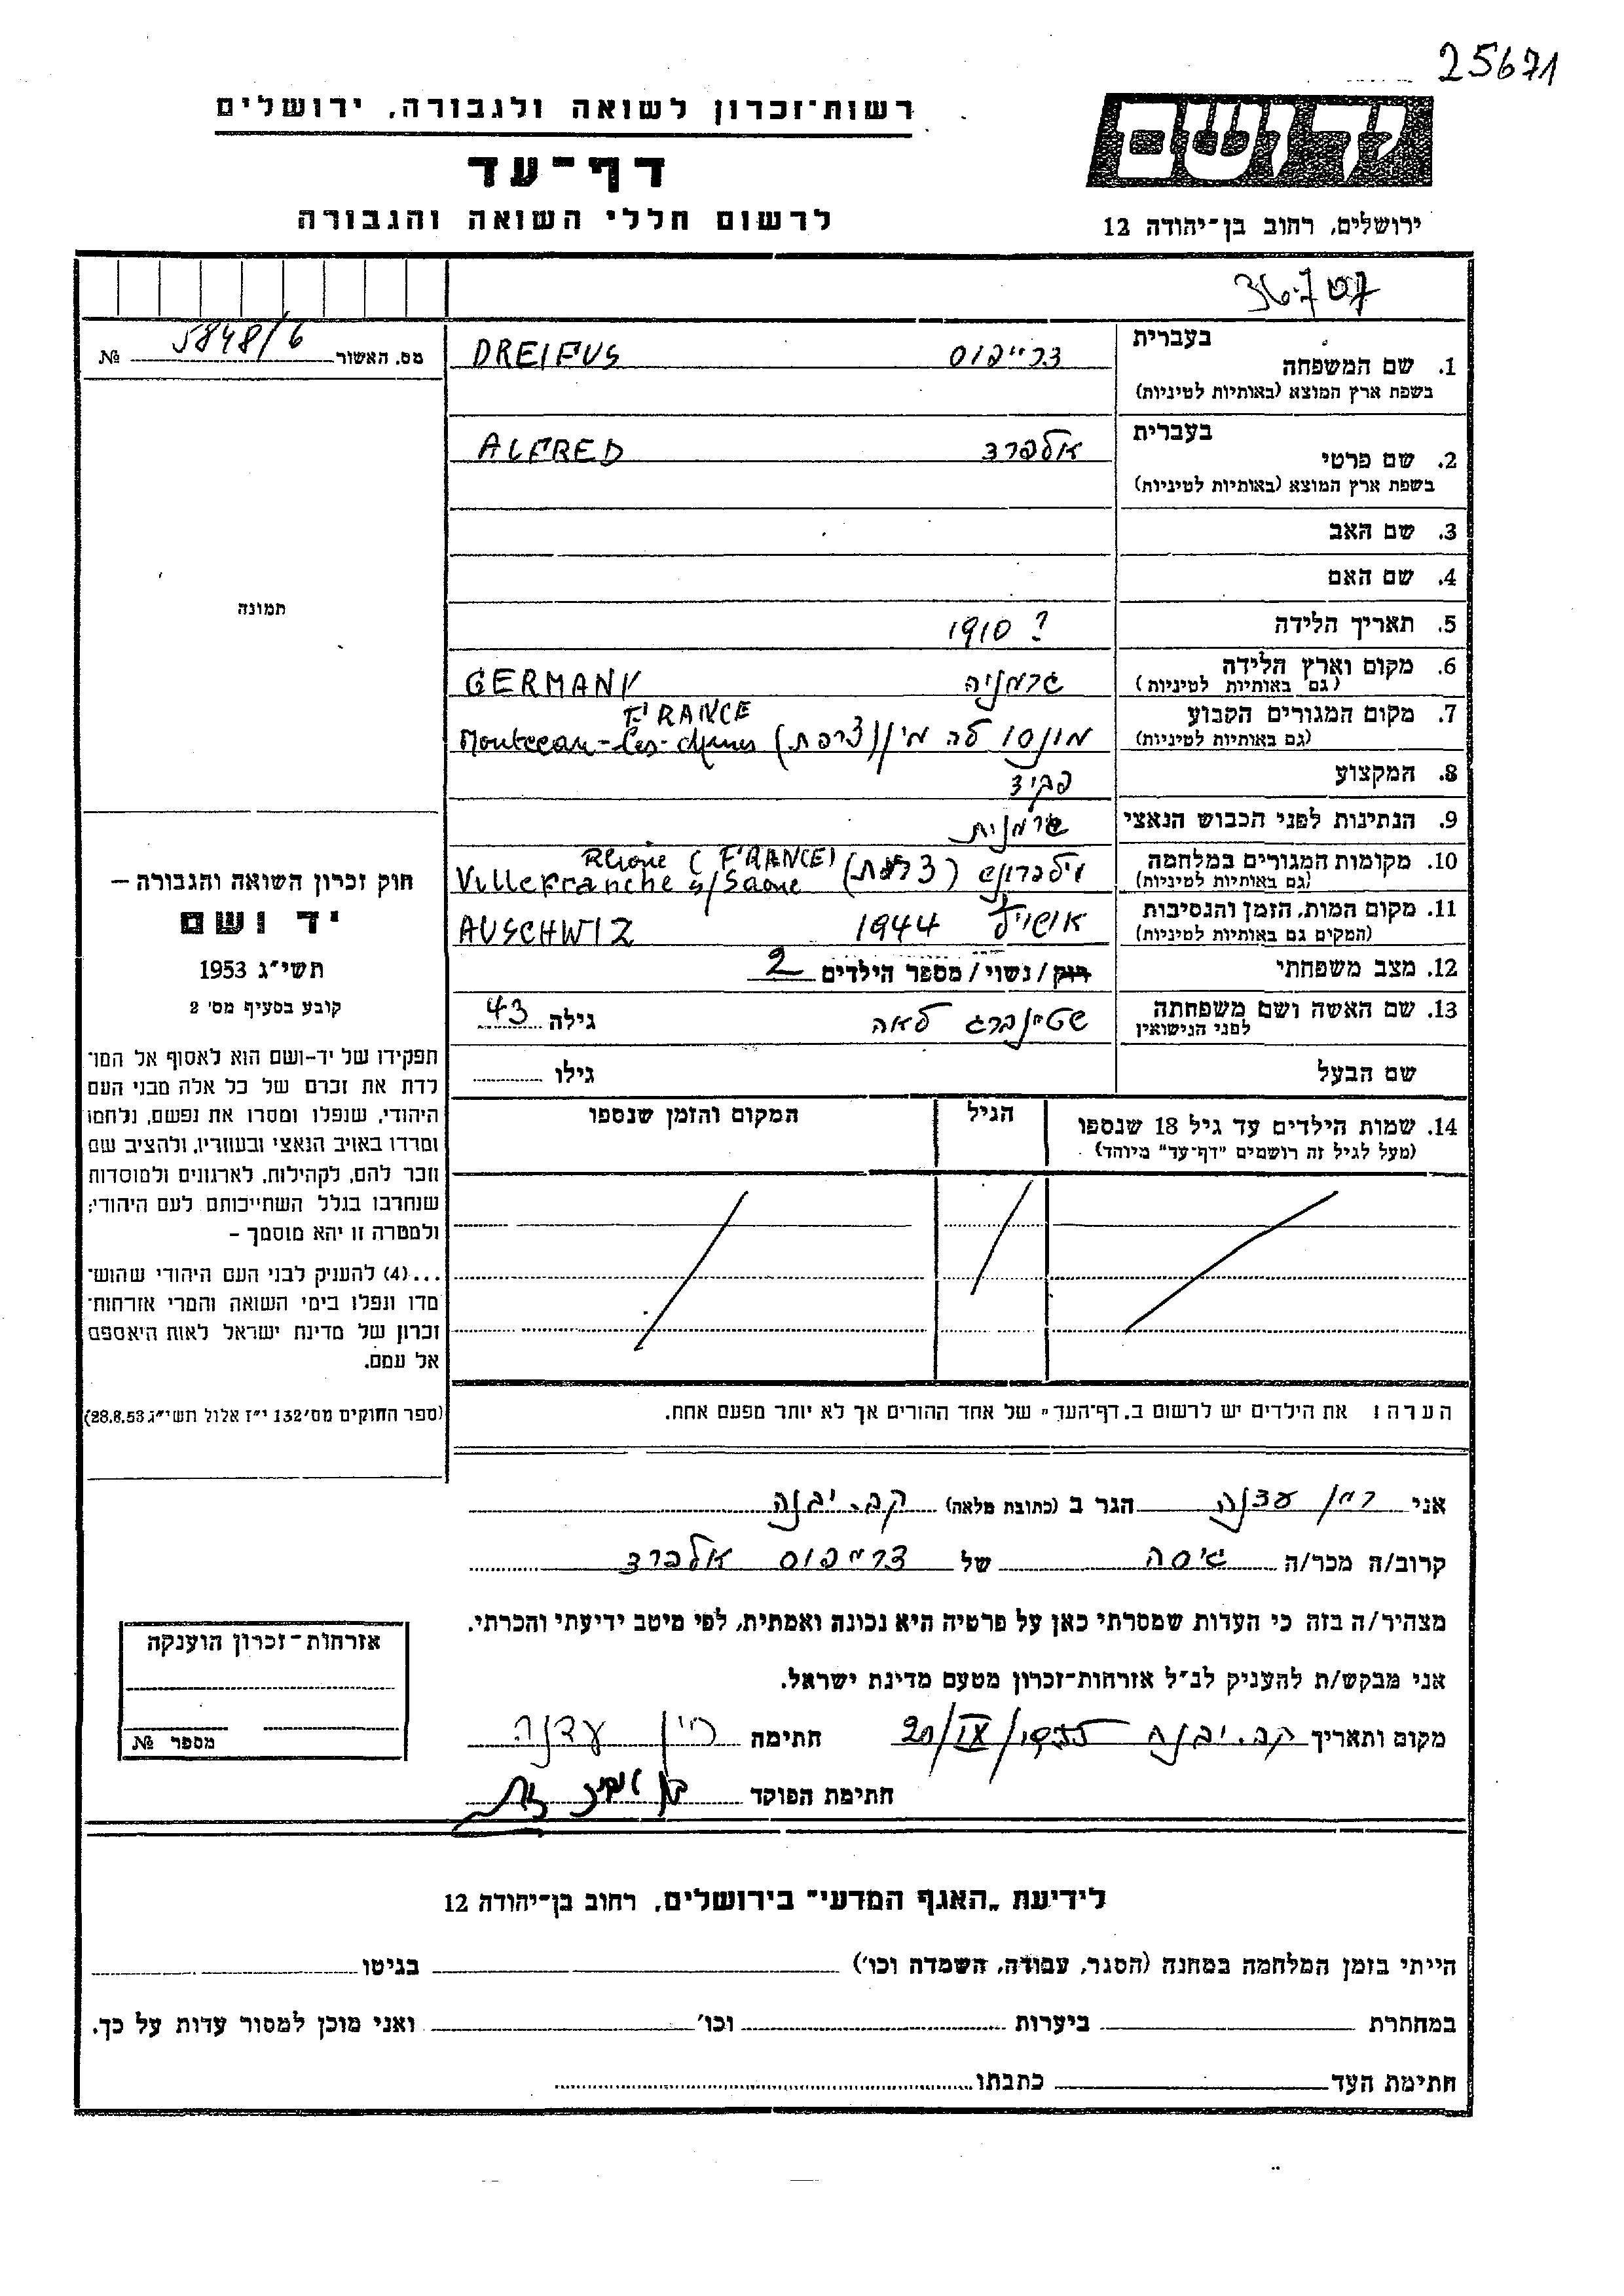 25671
רשות־זכרון לשואה ולגבורה, ירושלים
יד ושם
דף־עד
לרשום חללי השואה והגבורה
ירושלים, רחוב בן־יהודה 12
36707
מס. האשור 5848/6 №
בעברית
1. שם המשפחה דרייפוס DREIFUS
בשפת ארץ המוצא (באותיות לטיניות)
בעברית
2. שם פרטי אלפרד ALFRED
בשפת ארץ המוצא (באותיות לטיניות)
3. שם האב
4. שם האם
5. תאריך הלידה 1910 ?
6. מקום וארץ הלידה גרמניה GERMANY
(גם באותיות לטיניות)
FRANCE
7. מקום המגורים הקבוע מונסו לה מין (צרפת) Montceau-les-Mines
(גם באותיות לטיניות)
8. המקצוע פקיד
9. הנתינות לפני הכבוש הנאצי גרמנית
Rhône (FRANCE)
10. מקומות המגורים במלחמה וילפרנש (צרפת) Villefranche s/Saone
(גם באותיות לטיניות)
11. מקום המות, הזמן והנסיבות אושויץ 1944 AUSCHWIZ
(המקום גם באותיות לטיניות)
12. מצב משפחתי רווק/נשוי/מספר הילדים 2
13. שם האשה ושם משפחתה שטיינברג לאה גילה 43
לפני הנישואין
שם הבעל גילו
14. שמות הילדים עד גיל 18 שנספו הגיל המקום והזמן שנספו
(מעל לגיל זה רושמים "דף־עד" מיוחד)
הערה: את הילדים יש לרשום ב„דף־העד" של אחד ההורים אך לא יותר מפעם אחת.
תמונה
חוק זכרון השואה והגבורה –
יד ושם
תשי"ג 1953
קובע בסעיף מס' 2
תפקידו של יד-ושם הוא לאסוף אל המו־
לדת את זכרם של כל אלה מבני העם
היהודי, שנפלו ומסרו את נפשם, נלחמו
ומרדו באויב הנאצי ובעוזריו, ולהציב שם
וזכר להם, לקהילות, לארגונים ולמוסדות
שנחרבו בגלל השתייכותם לעם היהודי;
ולמטרה זו יהא מוסמך –
...(4) להעניק לבני העם היהודי שהוש־
מדו ונפלו בימי השואה והמרי אזרחות־
זכרון של מדינת ישראל לאות היאספם
אל עמם.
(ספר החוקים מס' 132 י"ז אלול תשי"ג 28.8.53)
אני עדנה הגר ב (כתובת מלאה) קב. יבנה
קרוב/ה מכר/ה גיסה של דרייפוס אלפרד
מצהיר/ה בזה כי העדות שמסרתי כאן על פרטיה היא נכונה ואמתית, לפי מיטב ידיעתי והכרתי.
אני מבקש/ת להעניק לנ"ל אזרחות־זכרון מטעם מדינת ישראל.
מקום ותאריך קב. יבנה 20/IX/1955 חתימה עדנה
חתימת הפוקד
אזרחות־זכרון הוענקה
מספר №
לידיעת „האגף המדעי" בירושלים, רחוב בן־יהודה 12
הייתי בזמן המלחמה במחנה (הסגר, עבודה, השמדה וכו') בגיטו
במחתרת ביערות וכו' ואני מוכן למסור עדות על כך.
חתימת העד כתבתו